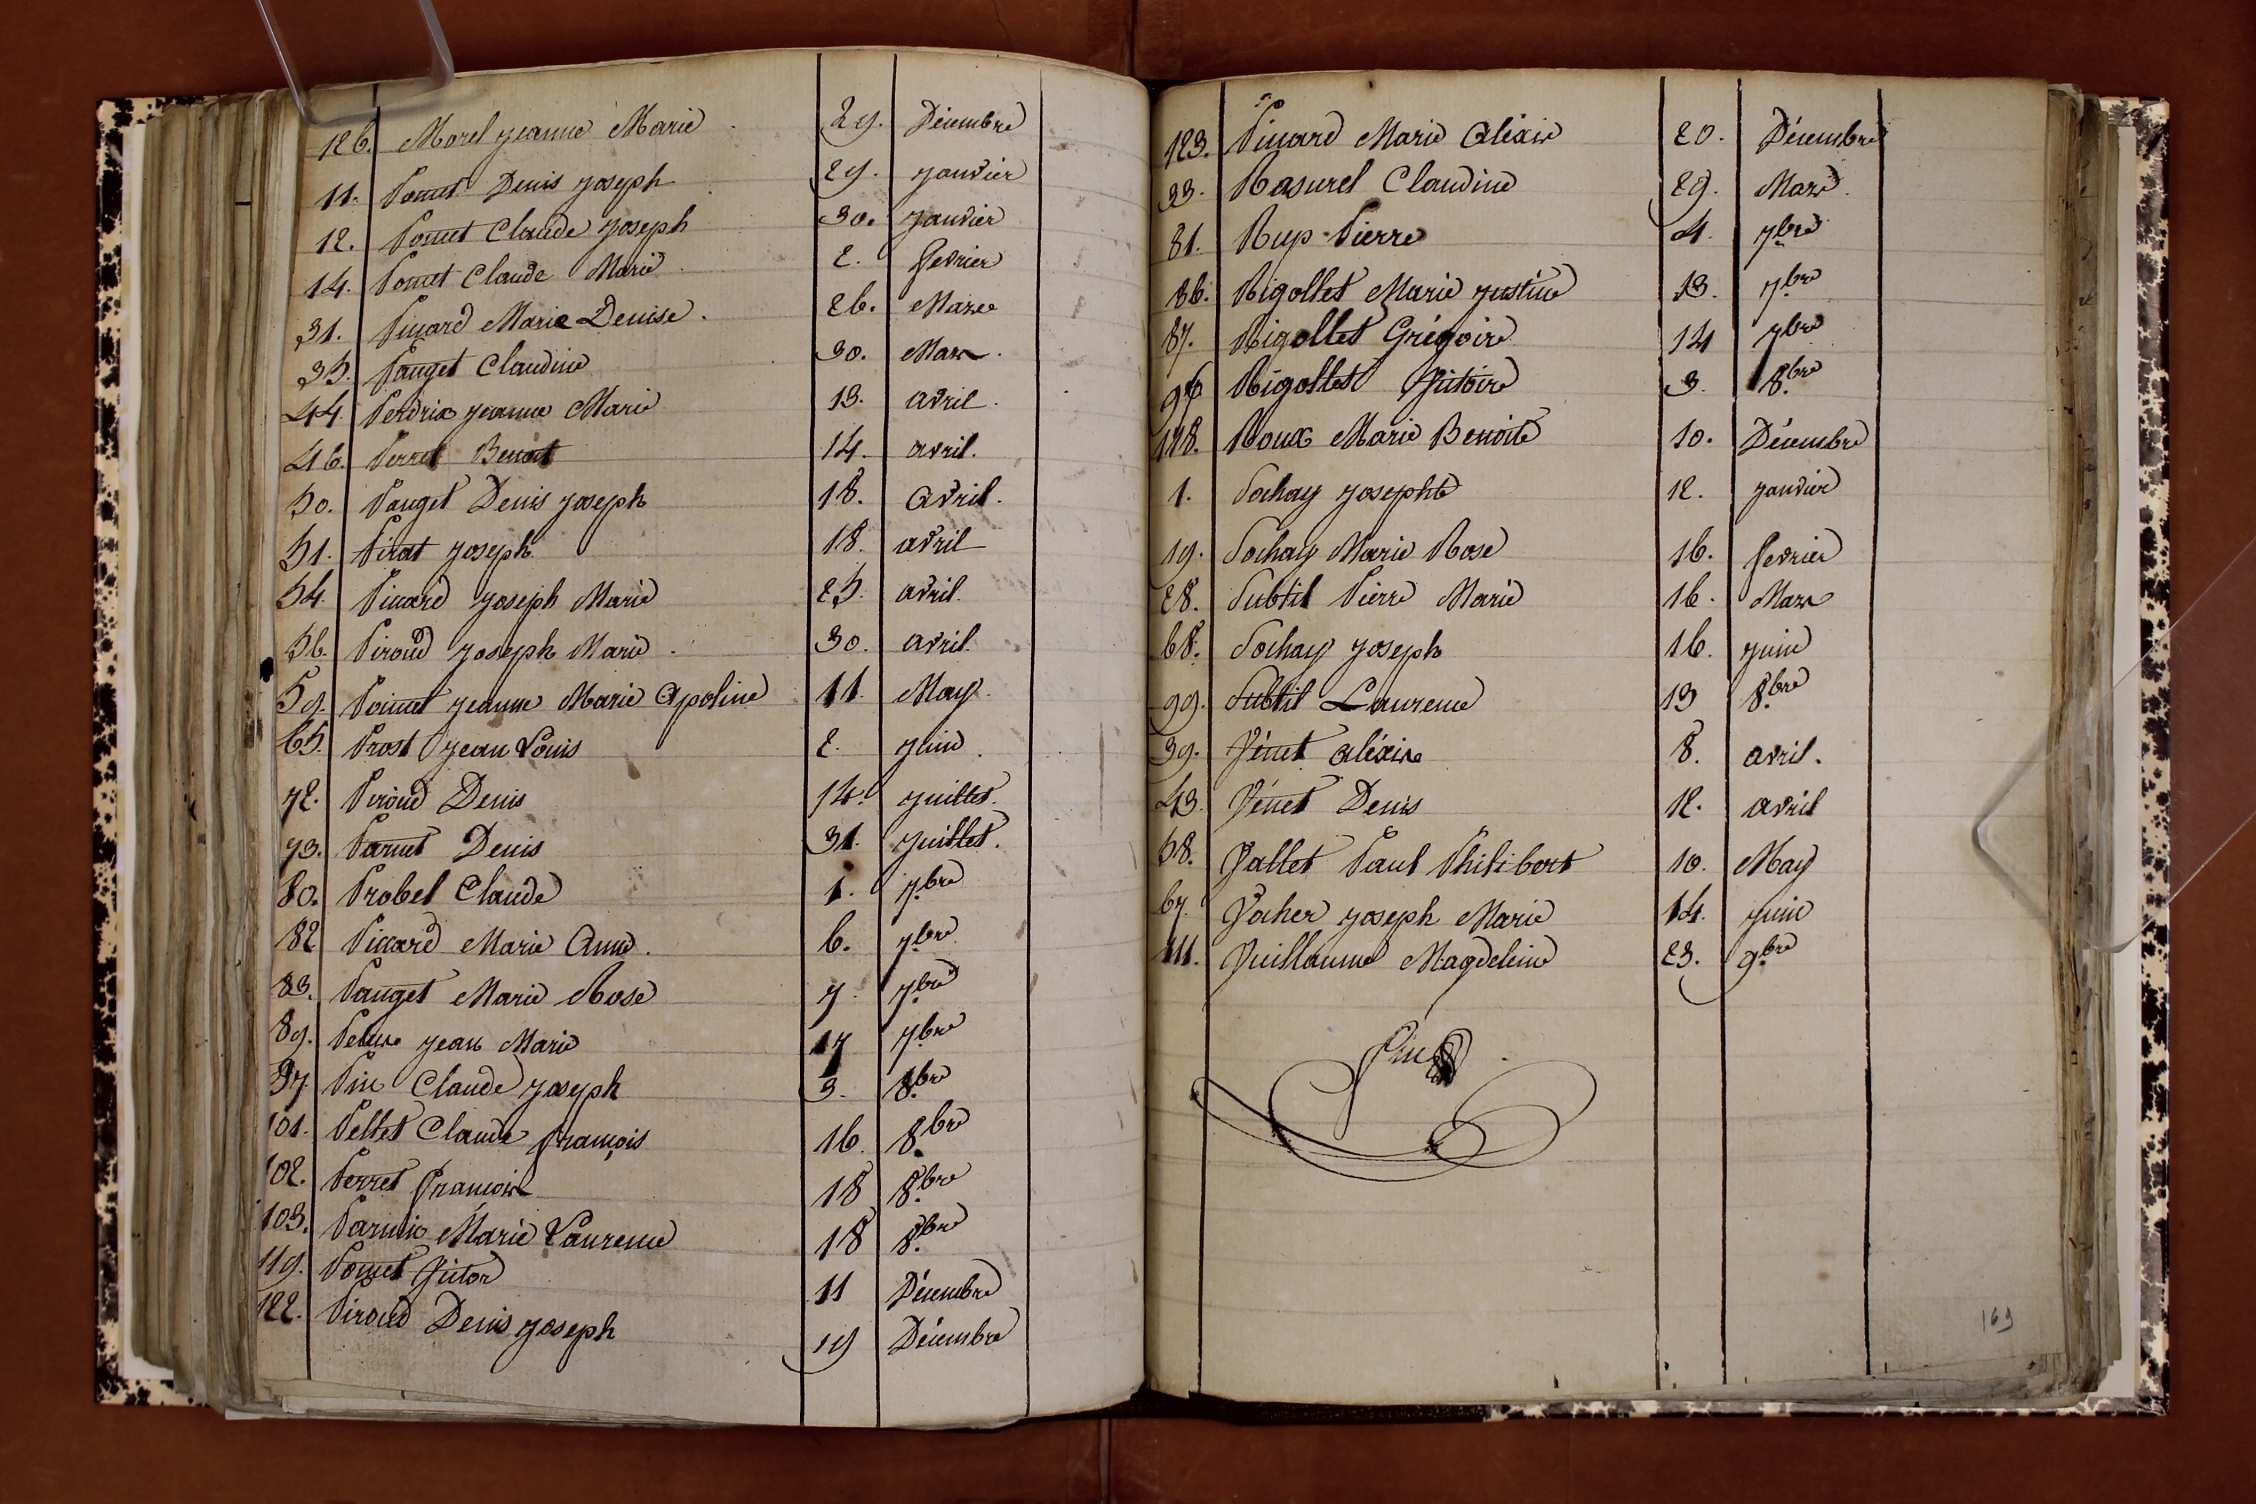 126. Morel jeanne Marie 29. Décembre
11. Pomet Denis joseph 29. janvier
12. Pomet Claude joseph 30. janvier
14. Pomet Claude Marie 2. fevrier
31. Picard Marie Denise. 26. Mars
35. Panget Claudine 30. Mars.
44. Perdrix jeanne Marie 13. avril.
46. Perret Benoit 14. avril.
50. Panget Denis joseph 18. avril.
51. Pirat joseph 18. avril
54. Piccard joseph Marie 25. avril.
56. Piroud joseph Marie. 30. avril.
59. Pomet jeanne Marie Apoline 11. May.
65. Prost jean Louis 2. juin.
72. Piroud Denis 14. juillet.
73. Parnet Denis 31. juillet.
80. Probel Claude 1. 7.bre
82 Piccard Marie Anne. 6. 7.bre
83. Panget Marie Rose 7. 7.bre
89. jean Marie 17 7.bre
97 Pin Claude joseph 3. 8.bre
101. Pellet Claude françois 16. 8.bre
102. Perret françois 18 8.bre
103. Marie Laurence 18 8.bre
119. Pomet Victor 11 Décembre
122. Piroud Denis joseph 19 Décembre
123. Picard Marie Alexis 20. Décembre
33. Rasurel Claudine 29. Mars.
81. Pierre 4. 7bre
86. Rigollet Marie justine 13. 7.bre
87. Rigollet Grégoire 14 7bre
96 Rigollet Victoire 3. 8.bre
118. Roux Marie Benoite 10. Décembre
1. Sochay josephte 12. janvier
19. Sochay Marie Rose 16. fevrier
28. Subtil Pierre Marie 16. Mars
68. Sochay joseph 16. juin
99. Subtil Laurence 13 8.bre
39. Vénet aléxis 8. avril.
43. Vénet Denis 12. avril
58. Vallet Paul Philibert 10. May
67. Vocher joseph Marie 14. juin
111. Vuillaume Magdeleine 23. 9.bre
fin
169